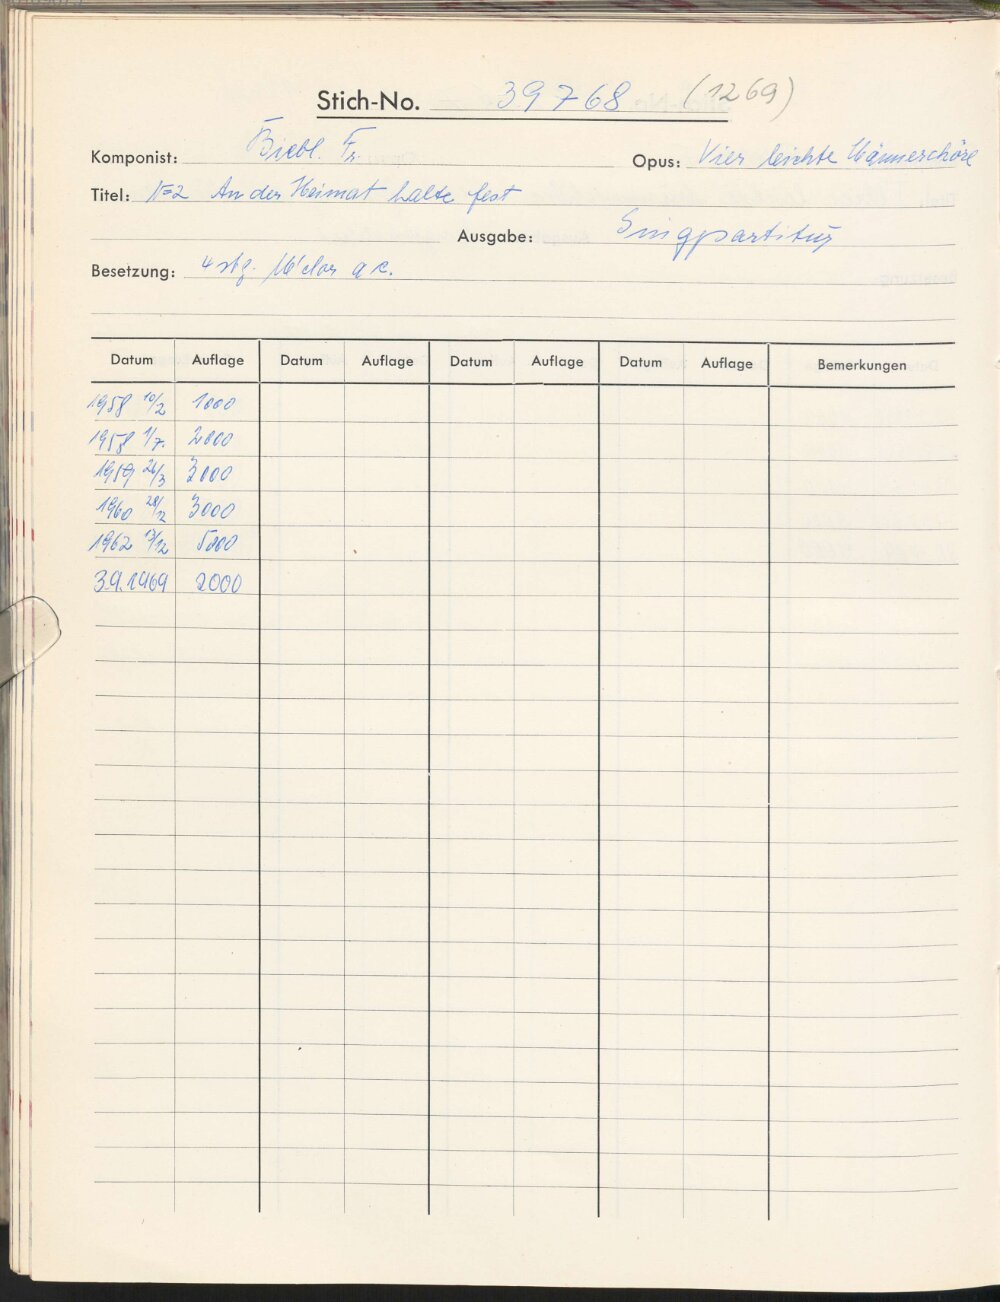 Stich-No. 39768 (1269)
Komponist: Biebl. Fr. Opus: Vier leichte Männerchöre
Titel: N=2 An der Heimat halte fest
Ausgabe: Singpartitur
Besetzung: 4 stg. M'chor a c.
Datum Auflage Datum Auflage Datum Auflage Datum Auflage Bemerkungen
1958 10/2 1000
1958 1/7. 2000
1959 26/3 3000
1960 28/12 3000
1962 13/12 5000
3.9.1969 2000